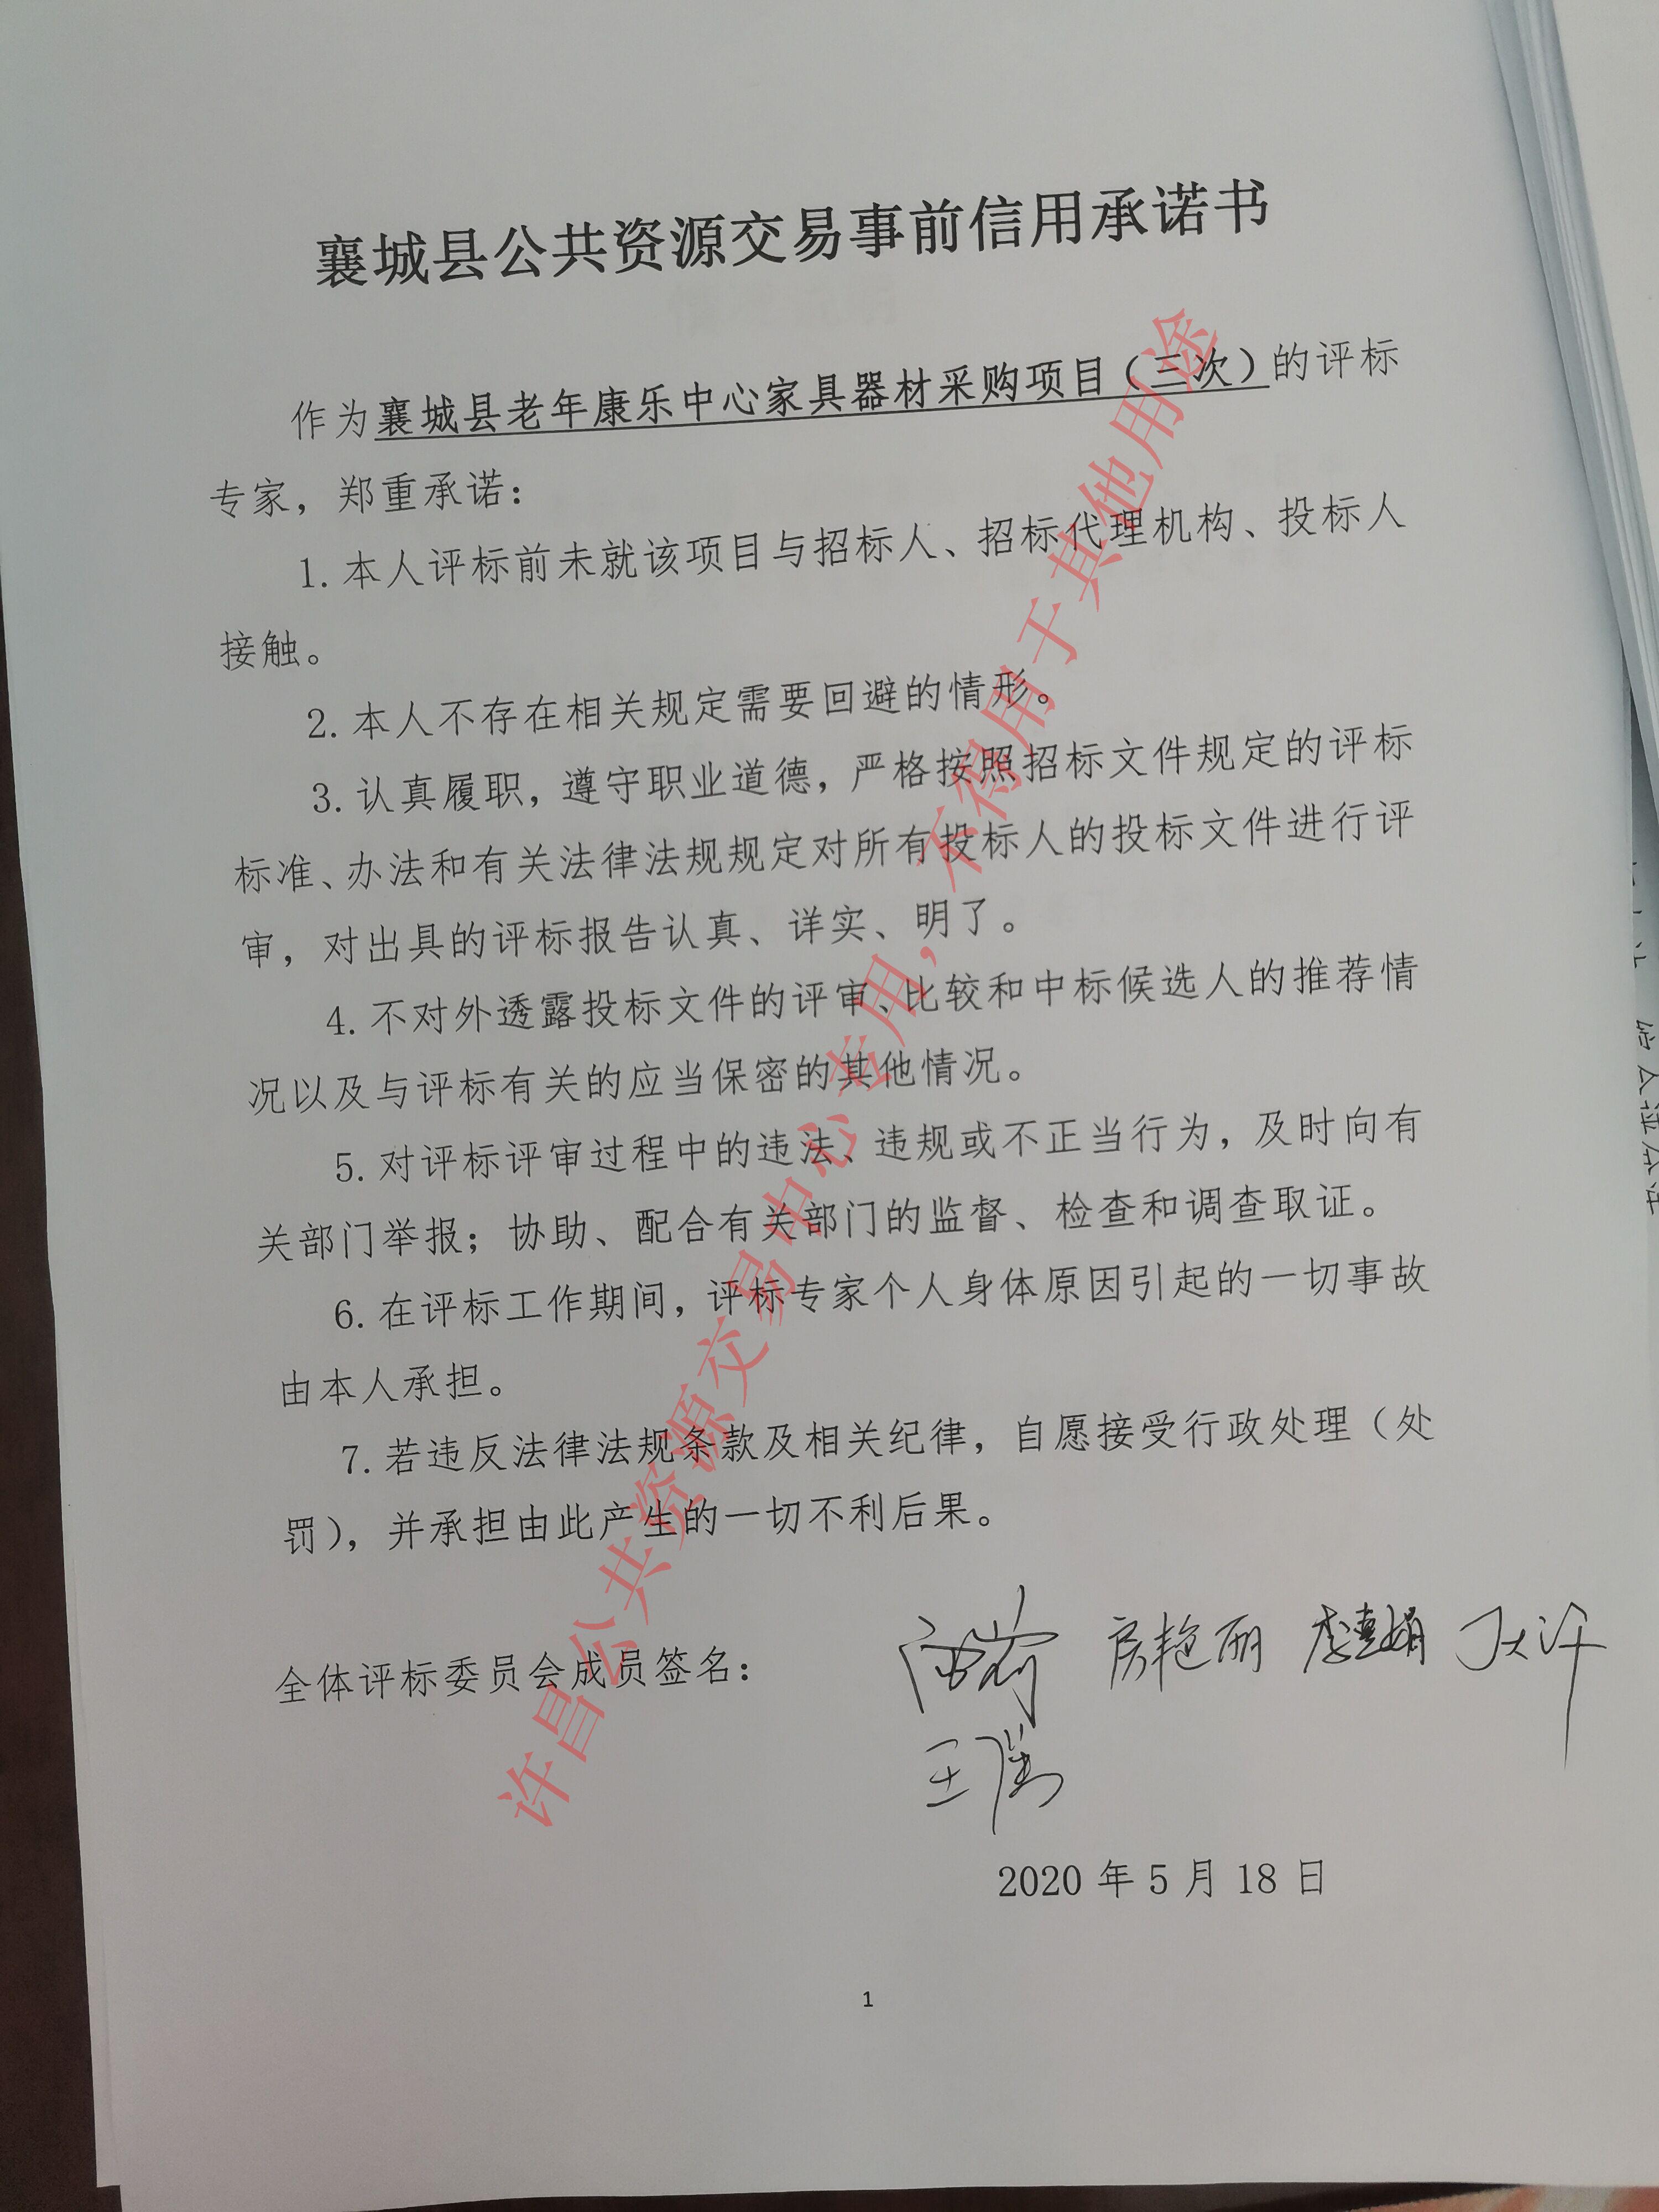 襄城县公共资源交易事前信用承诺书
作为襄城县老年康乐中心家具器材采购项目（三次）的评标
专家，郑重承诺：
1.本人评标前未就该项目与招标人、招标代理机构、投标人
接触。
2.本人不存在相关规定需要回避的情形。
3.认真履职，遵守职业道德，严格按照招标文件规定的评标
标准、办法和有关法律法规规定对所有投标人的投标文件进行评
审，对出具的评标报告认真、详实、明了。
4.不对外透露投标文件的评审、比较和中标候选人的推荐情
况以及与评标有关的应当保密的其他情况。
5.对评标评审过程中的违法、违规或不正当行为，及时向有
关部门举报；协助、配合有关部门的监督、检查和调查取证。
6.在评标工作期间，评标专家个人身体原因引起的一切事故
由本人承担。
7.若违反法律法规条款及相关纪律，自愿接受行政处理（处
罚），并承担由此产生的一切不利后果。
全体评标委员会成员签名：
房艳丽
2020 年 5 月 18 日
1
许昌公共资源交易中心专用，不得用于其他用途